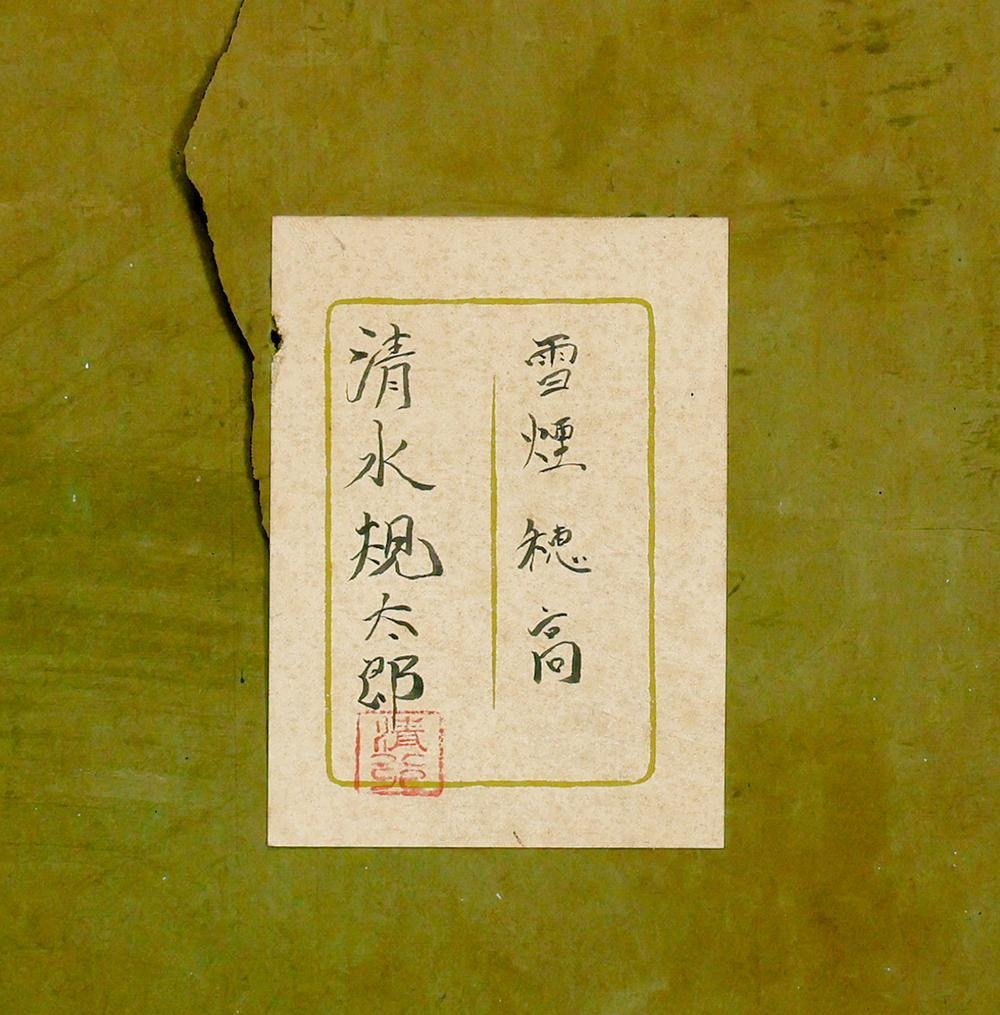 雪煙穂高
清水規太郎
清